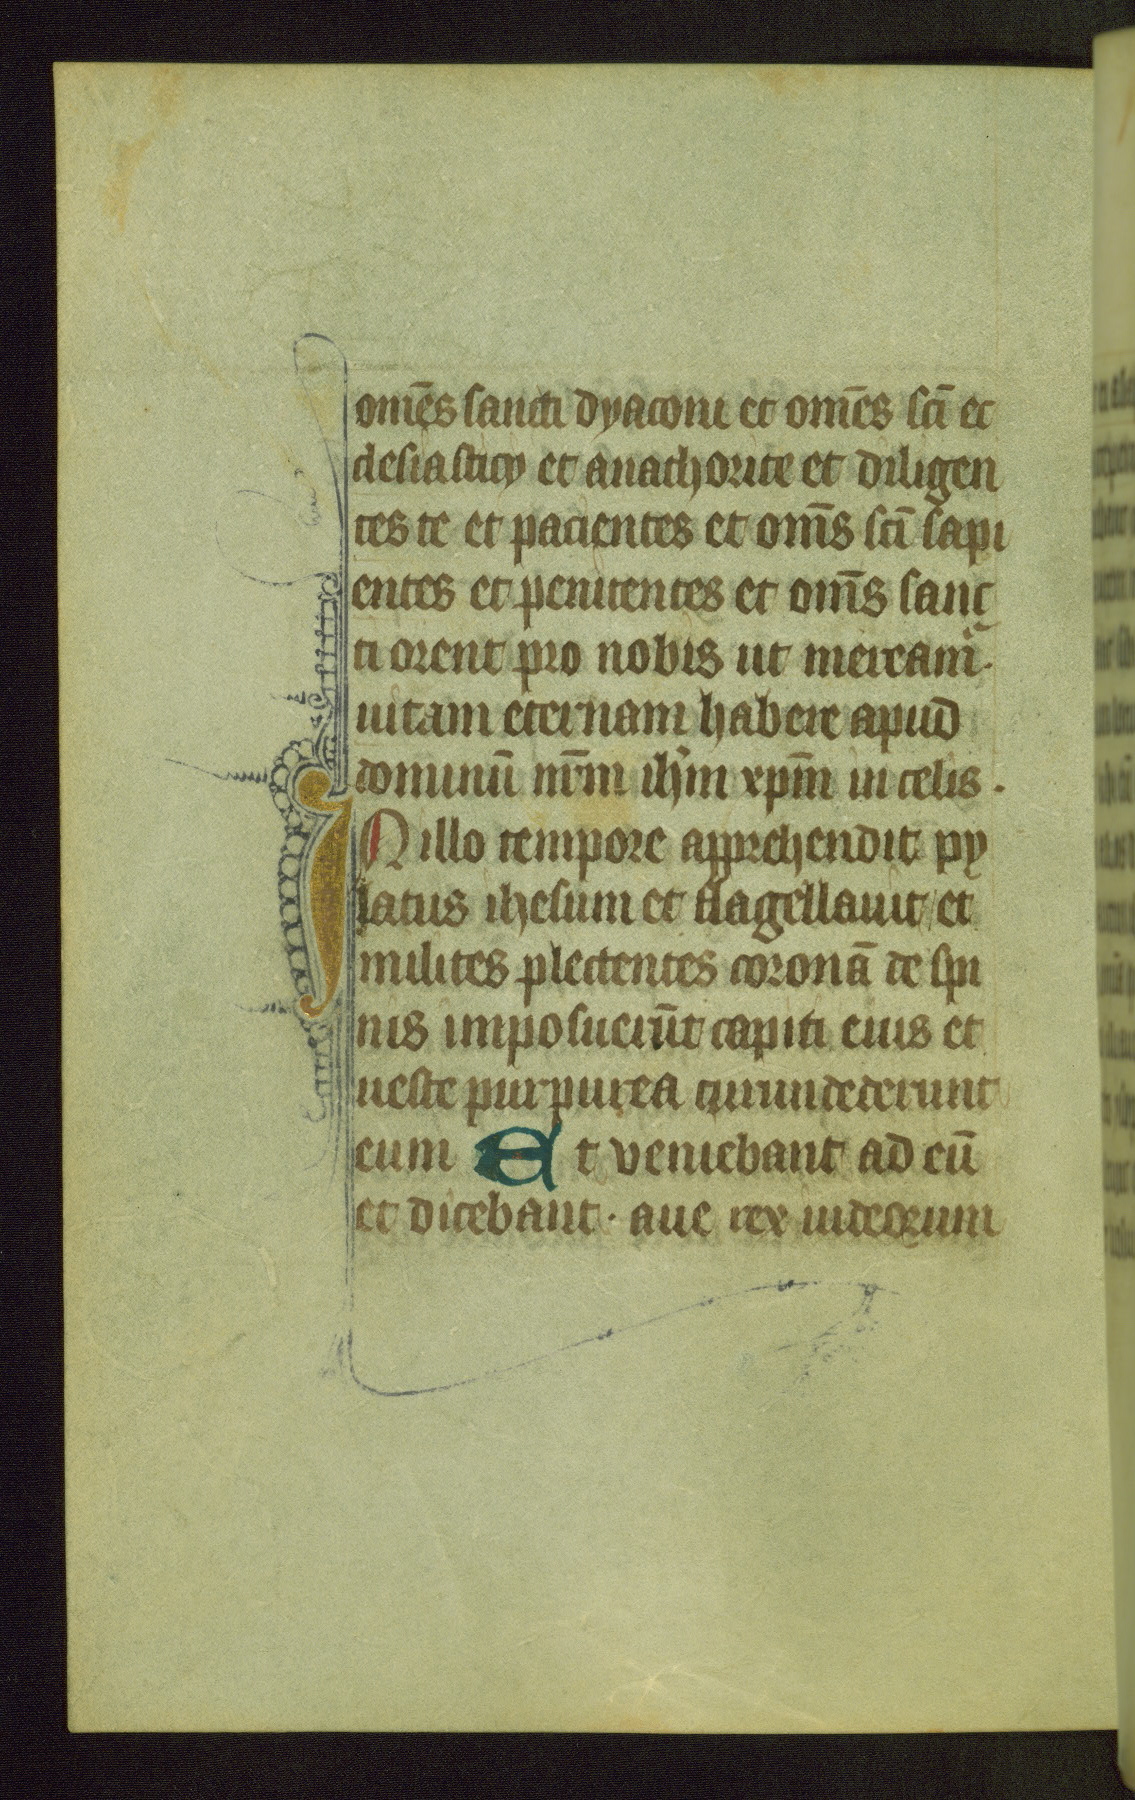 om̄es sancti dyaconi et om̄es sc̄i ec
clesiasticy et anachorite et diligen
tes te et pacientes et om̄s sc̄i sapi
entes et penitentes et om̄s sanc
ti orent pro nobis ut meream̄.
uitam eternam habere apud
dominū nr̄m ih̄m xp̄m in celis.
IN illo tempore apprehendit py
latus ihesum et flagellauit et
milites plectentes coronā de spi
nis imposuerūt capiti eius et
ueste purpurea circumdederunt
eum Et veniebant ad eū
et dicebant. aue rex iudeorum